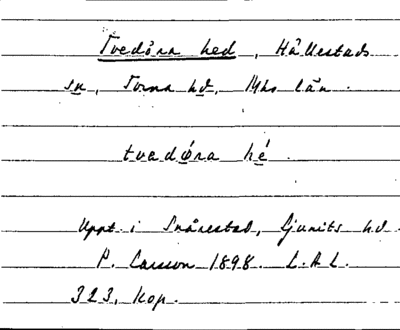 Tvedöra hed, Hållestads
sn, Torna hd, Mhs län.
tvadøra hé.
Uppt. i Snårestad, Ljunits hd.
P. Larsson 1898. L.A.L.
323, kop.